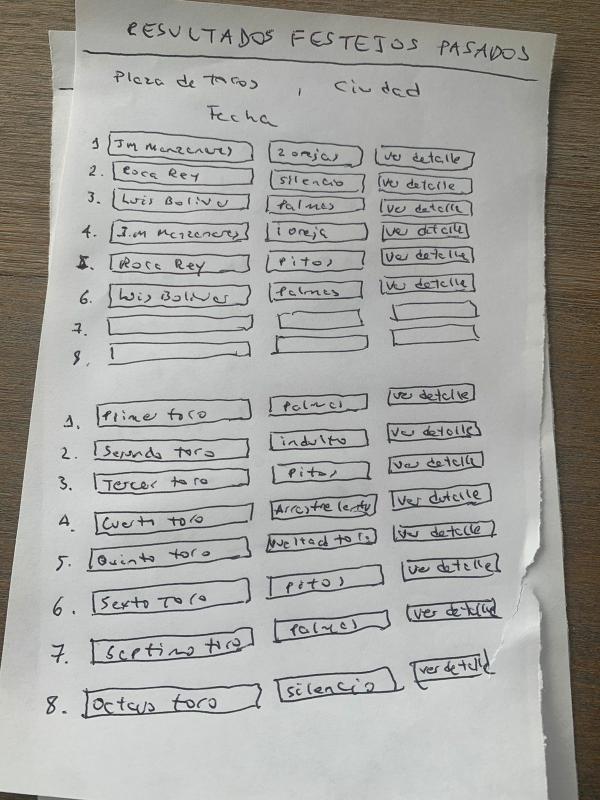 RESULTADOS FESTEJOS PASADOS
Plaza de toros , Ciudad
Fecha
1 JM Manzanares 2 orejas ver detalle
2. Roca Rey silencio ver detalle
3. Luis Boliva Palmas ver detalle
4. J.M Manzanares 1 oreja ver detalle
5. Roca Rey Pitos ver detalle
6. Luis Bolivar Palmas ver detalle
7.
8.
1. Primer toro Palmas ver detalle
2. Segundo toro indulto ver detalle
3. Tercer toro Pitos ver detalle
4. Cuarto toro Arrastre lento ver detalle
5. Quinto toro Vuelta al toro ver detalle
6. Sexto Toro Pitos ver detalle
7. Septimo toro Palmas ver detalle
8. Octavo toro silencio ver detalle